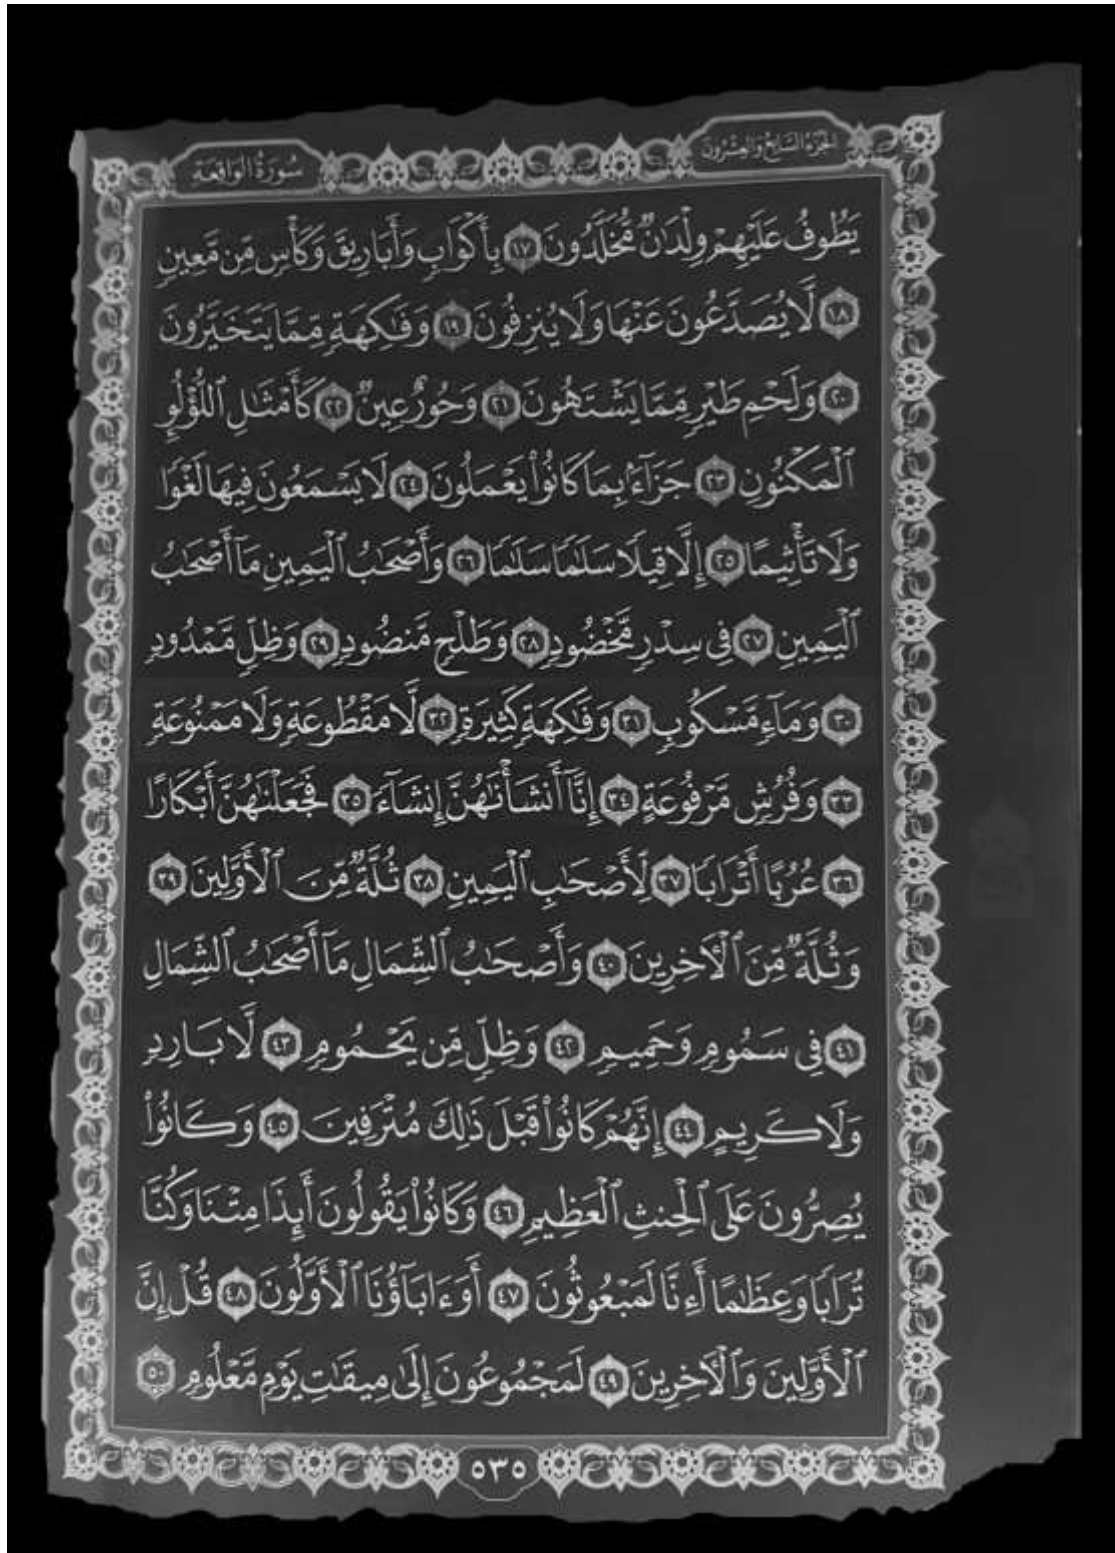 الجزء السابع والعشرون
سورة الواقعة
يَطُوفُ عَلَيْهِمْ وِلْدَٰنٌ مُّخَلَّدُونَ ١٧ بِأَكْوَابٍ وَأَبَارِيقَ وَكَأْسٍ مِّن مَّعِينٍ
١٨ لَّا يُصَدَّعُونَ عَنْهَا وَلَا يُنزِفُونَ ١٩ وَفَٰكِهَةٍ مِّمَّا يَتَخَيَّرُونَ
٢٠ وَلَحْمِ طَيْرٍ مِّمَّا يَشْتَهُونَ ٢١ وَحُورٌ عِينٌ ٢٢ كَأَمْثَٰلِ ٱللُّؤْلُؤِ
ٱلْمَكْنُونِ ٢٣ جَزَآءًۢ بِمَا كَانُوا۟ يَعْمَلُونَ ٢٤ لَا يَسْمَعُونَ فِيهَا لَغْوًا
وَلَا تَأْثِيمًا ٢٥ إِلَّا قِيلًا سَلَٰمًا سَلَٰمًا ٢٦ وَأَصْحَٰبُ ٱلْيَمِينِ مَآ أَصْحَٰبُ
ٱلْيَمِينِ ٢٧ فِى سِدْرٍ مَّخْضُودٍ ٢٨ وَطَلْحٍ مَّنضُودٍ ٢٩ وَظِلٍّ مَّمْدُودٍ
٣٠ وَمَآءٍ مَّسْكُوبٍ ٣١ وَفَٰكِهَةٍ كَثِيرَةٍ ٣٢ لَّا مَقْطُوعَةٍ وَلَا مَمْنُوعَةٍ
٣٣ وَفُرُشٍ مَّرْفُوعَةٍ ٣٤ إِنَّآ أَنشَأْنَٰهُنَّ إِنشَآءً ٣٥ فَجَعَلْنَٰهُنَّ أَبْكَارًا
٣٦ عُرُبًا أَتْرَابًا ٣٧ لِّأَصْحَٰبِ ٱلْيَمِينِ ٣٨ ثُلَّةٌ مِّنَ ٱلْأَوَّلِينَ ٣٩
وَثُلَّةٌ مِّنَ ٱلْءَاخِرِينَ ٤٠ وَأَصْحَٰبُ ٱلشِّمَالِ مَآ أَصْحَٰبُ ٱلشِّمَالِ
٤١ فِى سَمُومٍ وَحَمِيمٍ ٤٢ وَظِلٍّ مِّن يَحْمُومٍ ٤٣ لَّا بَارِدٍ
وَلَا كَرِيمٍ ٤٤ إِنَّهُمْ كَانُوا۟ قَبْلَ ذَٰلِكَ مُتْرَفِينَ ٤٥ وَكَانُوا۟
يُصِرُّونَ عَلَى ٱلْحِنثِ ٱلْعَظِيمِ ٤٦ وَكَانُوا۟ يَقُولُونَ أَئِذَا مِتْنَا وَكُنَّا
تُرَابًا وَعِظَٰمًا أَءِنَّا لَمَبْعُوثُونَ ٤٧ أَوَءَابَآؤُنَا ٱلْأَوَّلُونَ ٤٨ قُلْ إِنَّ
ٱلْأَوَّلِينَ وَٱلْءَاخِرِينَ ٤٩ لَمَجْمُوعُونَ إِلَىٰ مِيقَٰتِ يَوْمٍ مَّعْلُومٍ ٥٠
٥٣٥